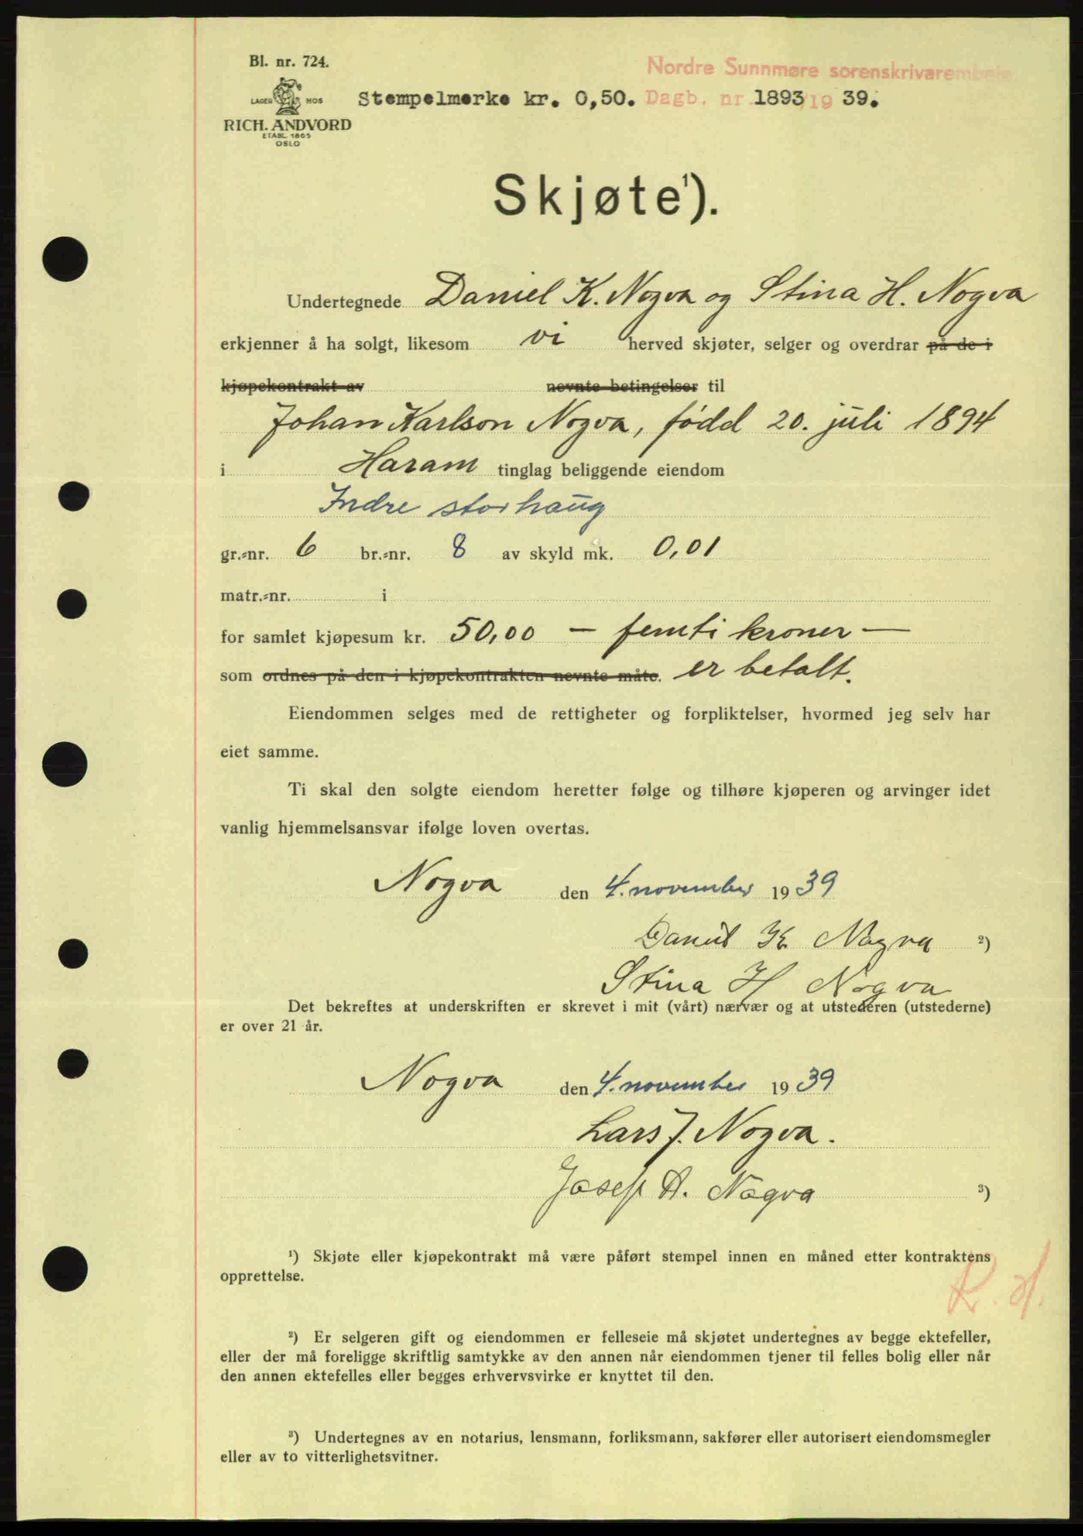 Bl. nr. 724.
LAGER HOS
RICH. ANDVORD
ETABL. 1865
OSLO
Nordre Sunnmøre sorenskrivarembete
Stempelmerke kr. 0,50. Dagb. nr. 1893/19 39.
Skjøte¹).
Undertegnede Daniel K. Nogva og Stina H. Nogva
erkjenner å ha solgt, likesom vi herved skjøter, selger og overdrar på de i
kjøpekontrakt av nevnte betingelser til
Johan Karlson Nogva, født 20. juli 1894
i Haram tinglag beliggende eiendom
Indre storhaug
gr.-nr. 6 br.-nr. 8 av skyld mk. 0,01
matr.-nr. i
for samlet kjøpesum kr. 50,00 — femti kroner —
som ordnes på den i kjøpekontrakten nevnte måte. er betalt.
Eiendommen selges med de rettigheter og forpliktelser, hvormed jeg selv har
eiet samme.
Ti skal den solgte eiendom heretter følge og tilhøre kjøperen og arvinger idet
vanlig hjemmelsansvar ifølge loven overtas.
Nogva den 4. november 1939
Daniel K Nogva ²)
Stina H Nogva
Det bekreftes at underskriften er skrevet i mit (vårt) nærvær og at utstederen (utstederne)
er over 21 år.
Nogva den 4. november 1939
Lars J. Nogva.
Josef A. Nogva ³)
¹) Skjøte eller kjøpekontrakt må være påført stempel innen en måned etter kontraktens
opprettelse.
R. H.
²) Er selgeren gift og eiendommen er felleseie må skjøtet undertegnes av begge ektefeller,
eller der må foreligge skriftlig samtykke av den annen når eiendommen tjener til felles bolig eller når
den annen ektefelles eller begges erhvervsvirke er knyttet til den.
³) Undertegnes av en notarius, lensmann, forliksmann, sakfører eller autorisert eiendomsmegler
eller av to vitterlighetsvitner.